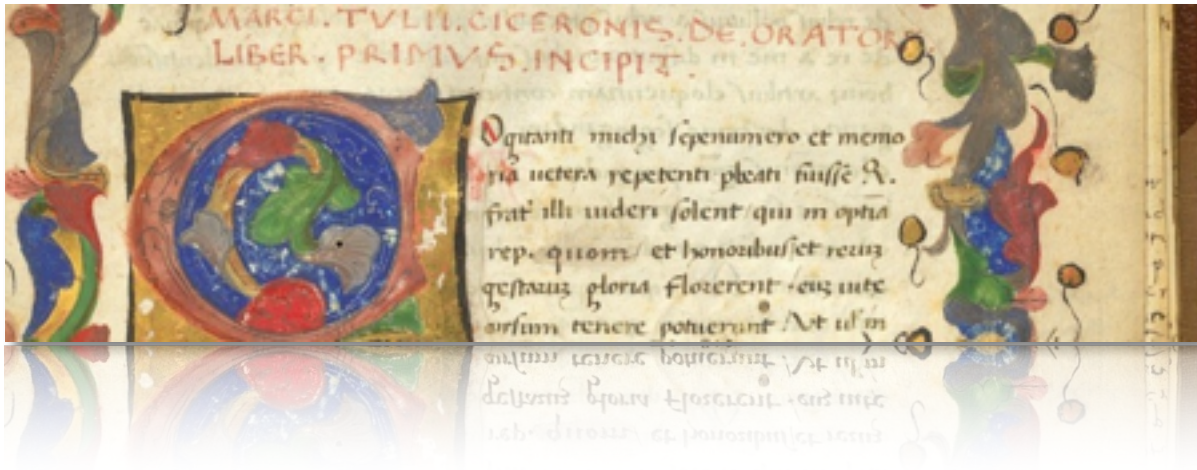 MARCI. TVLII. CICERONIS. DE. ORATORE.
LIBER. PRIMVS. INCIPIT.
Ogitanti michi sepenumero et memo
ria uetera repetenti pbeati fuisse R.
frat illi uideri solent / qui in optia
rep. quom / et honoribus / et reruz
gestaruz gloria florerent. euz uite
cursum tenere potuerunt / Vt uł in